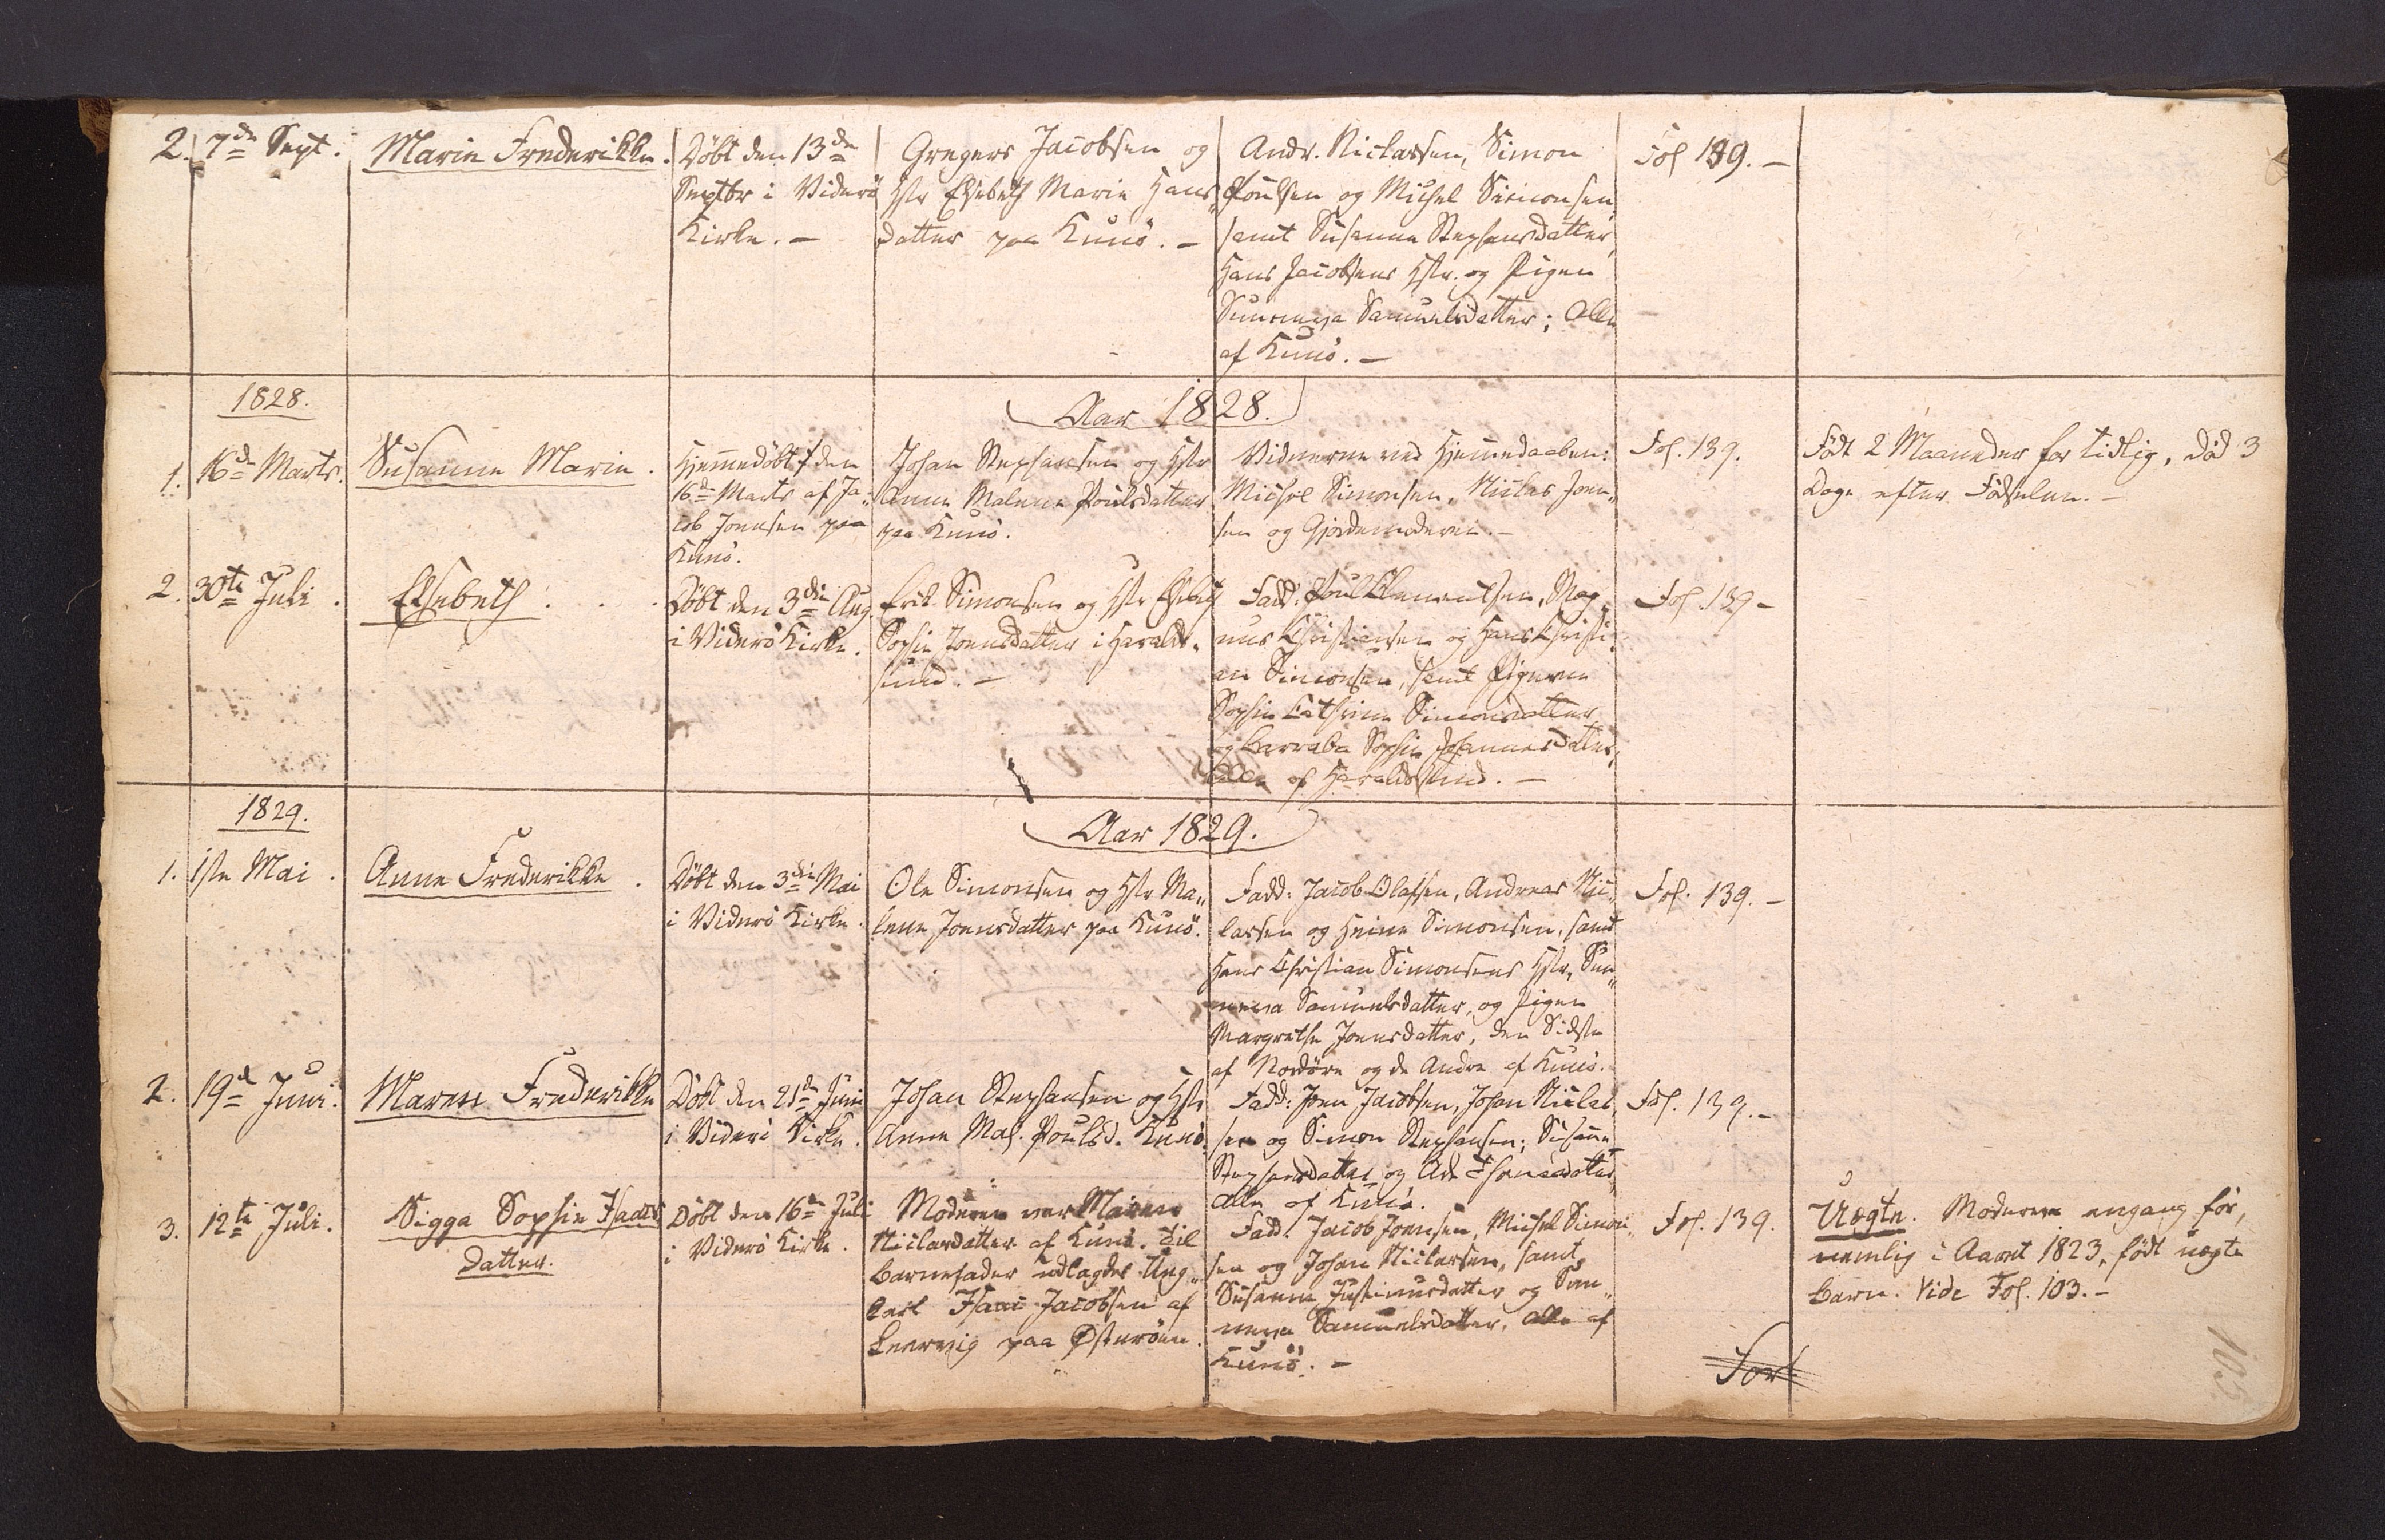 2. 7de Sept. Marie Frederikke.
Døbt den 13de
Septbr i Viderø
Kirke. —
Gregers Jacobsen og
Hstr Elsebeth Marie Hans„
datter paa Kunø. —
Andr. Niclassen, Simon
Poulsen og Michel Simonsen,
samt Susanne Stephansdatter,
Hans Jacobsens Hstr. og Pigen
Sunneva Samuelsdatter; Alle
af Kunø. —
Fol 139. —
1828.
Aar 1828.
1. 16de Marts. Susanne Marie.
Hjemmedøbt den
16de Marts af Ja„
cob Joensen paa
Kunø.
Johan Stephansen og Hstr
Anne Malene Poulsdatter
paa Kunø.
Vidnerne ved Hjemmedaaben:
Michel Simonsen, Niclas Joen„
sen og Gjordemoderen. —
Fol. 139.
Født 2 Maaneder for tidlig, død 3
Dage efter Fødselen. —
2. 30te Juli. Elsebeth . . .
Døbt den 3die Aug.
i Viderø Kirke.
Erik Simonsen og Hstr Elsebeth
Sophie Joensdatter i Haralds„
sund. —
Fadd: Poul Clementsen, Mag„
nus Christiansen og Hans Christi„
an Simonsen, samt Pigerne
Sophie Cathrine Simonsdatter
og Barraba Sophie Johannesdatter,
Alle af Haraldssund. —
Fol. 139 —
1829.
Aar 1829.
1. 1ste Mai. Anne Frederikke.
Døbt den 3die Mai
i Viderø Kirke.
Ole Simonsen og Hstr Ma„
lene Joensdatter paa Kunø.
Fadd: Jacob Olafsen, Andreas Nic„
lassen og Heine Simonsen, samt
Hans Christian Simonsens Hstr, Sun„
neva Samuelsdatter, og Pigen
Margrethe Joensdatter, den Sidste
af Nordøre og de Andre af Kunø.
Fol. 139. —
2. 19de Juni. Maren Frederikke
Døbt den 21de Juni
i Viderø Kirke.
Johan Stephansen og Hstr
Anne Mal. Poulsd. Kunø.
Fadd: Joen Jacobsen, Johan Niclas„
sen og Simon Stephansen; Susanne
Stephansdatter og Ade
Alle af Kunø.
Fol. 139. —
3. 12te Juli. Sigga Sophie Isacs
datter.
Døbt den 16de Juli
i Viderø Kirke.
Moderen var Maren
Niclasdatter af Kunø. Til
Barnefader udlagdes Ung„
karl Isaac Jacobsen af
Leervig paa Østerøen.
Fadd: Jacob Joensen, Michel Simon„
sen og Johan Niclassen, samt
Susanne Justinusdatter og Sun„
neva Samuelsdatter, alle af
Kunø. —
Fol. 139.
Uægte. Moderen engang før,
nemlig i Aaret 1823, født uægte
Barn. Vide Fol. 103. —
For
105